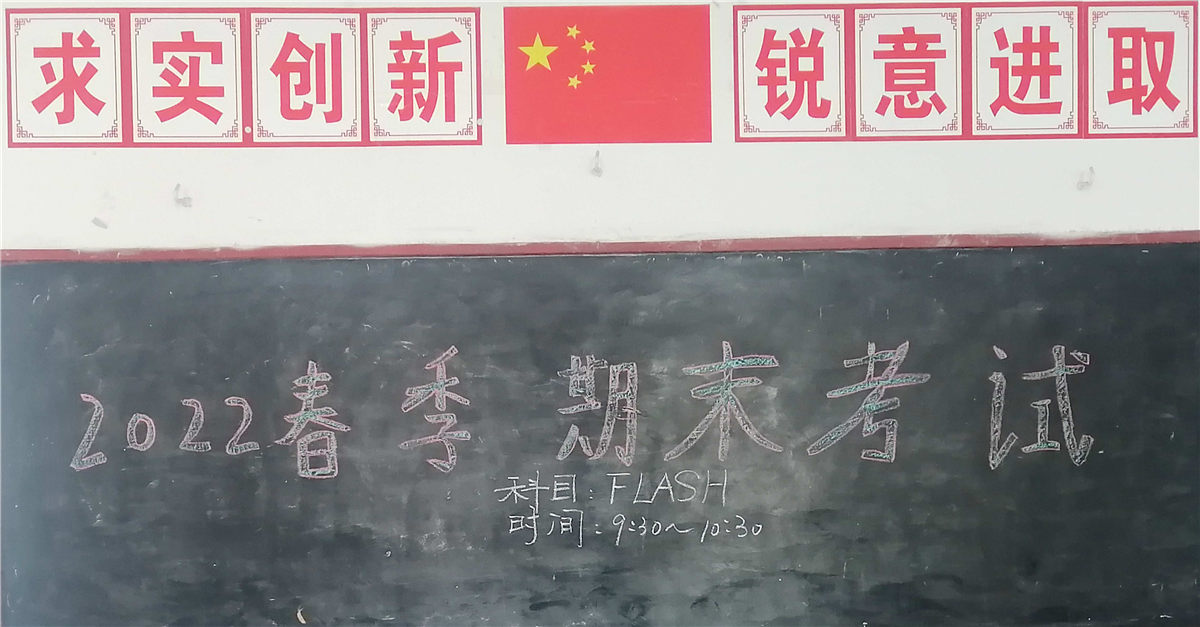 求实创新 锐意进取
2022春季期末考试
科目:FLASH
时间:9:30~10:30